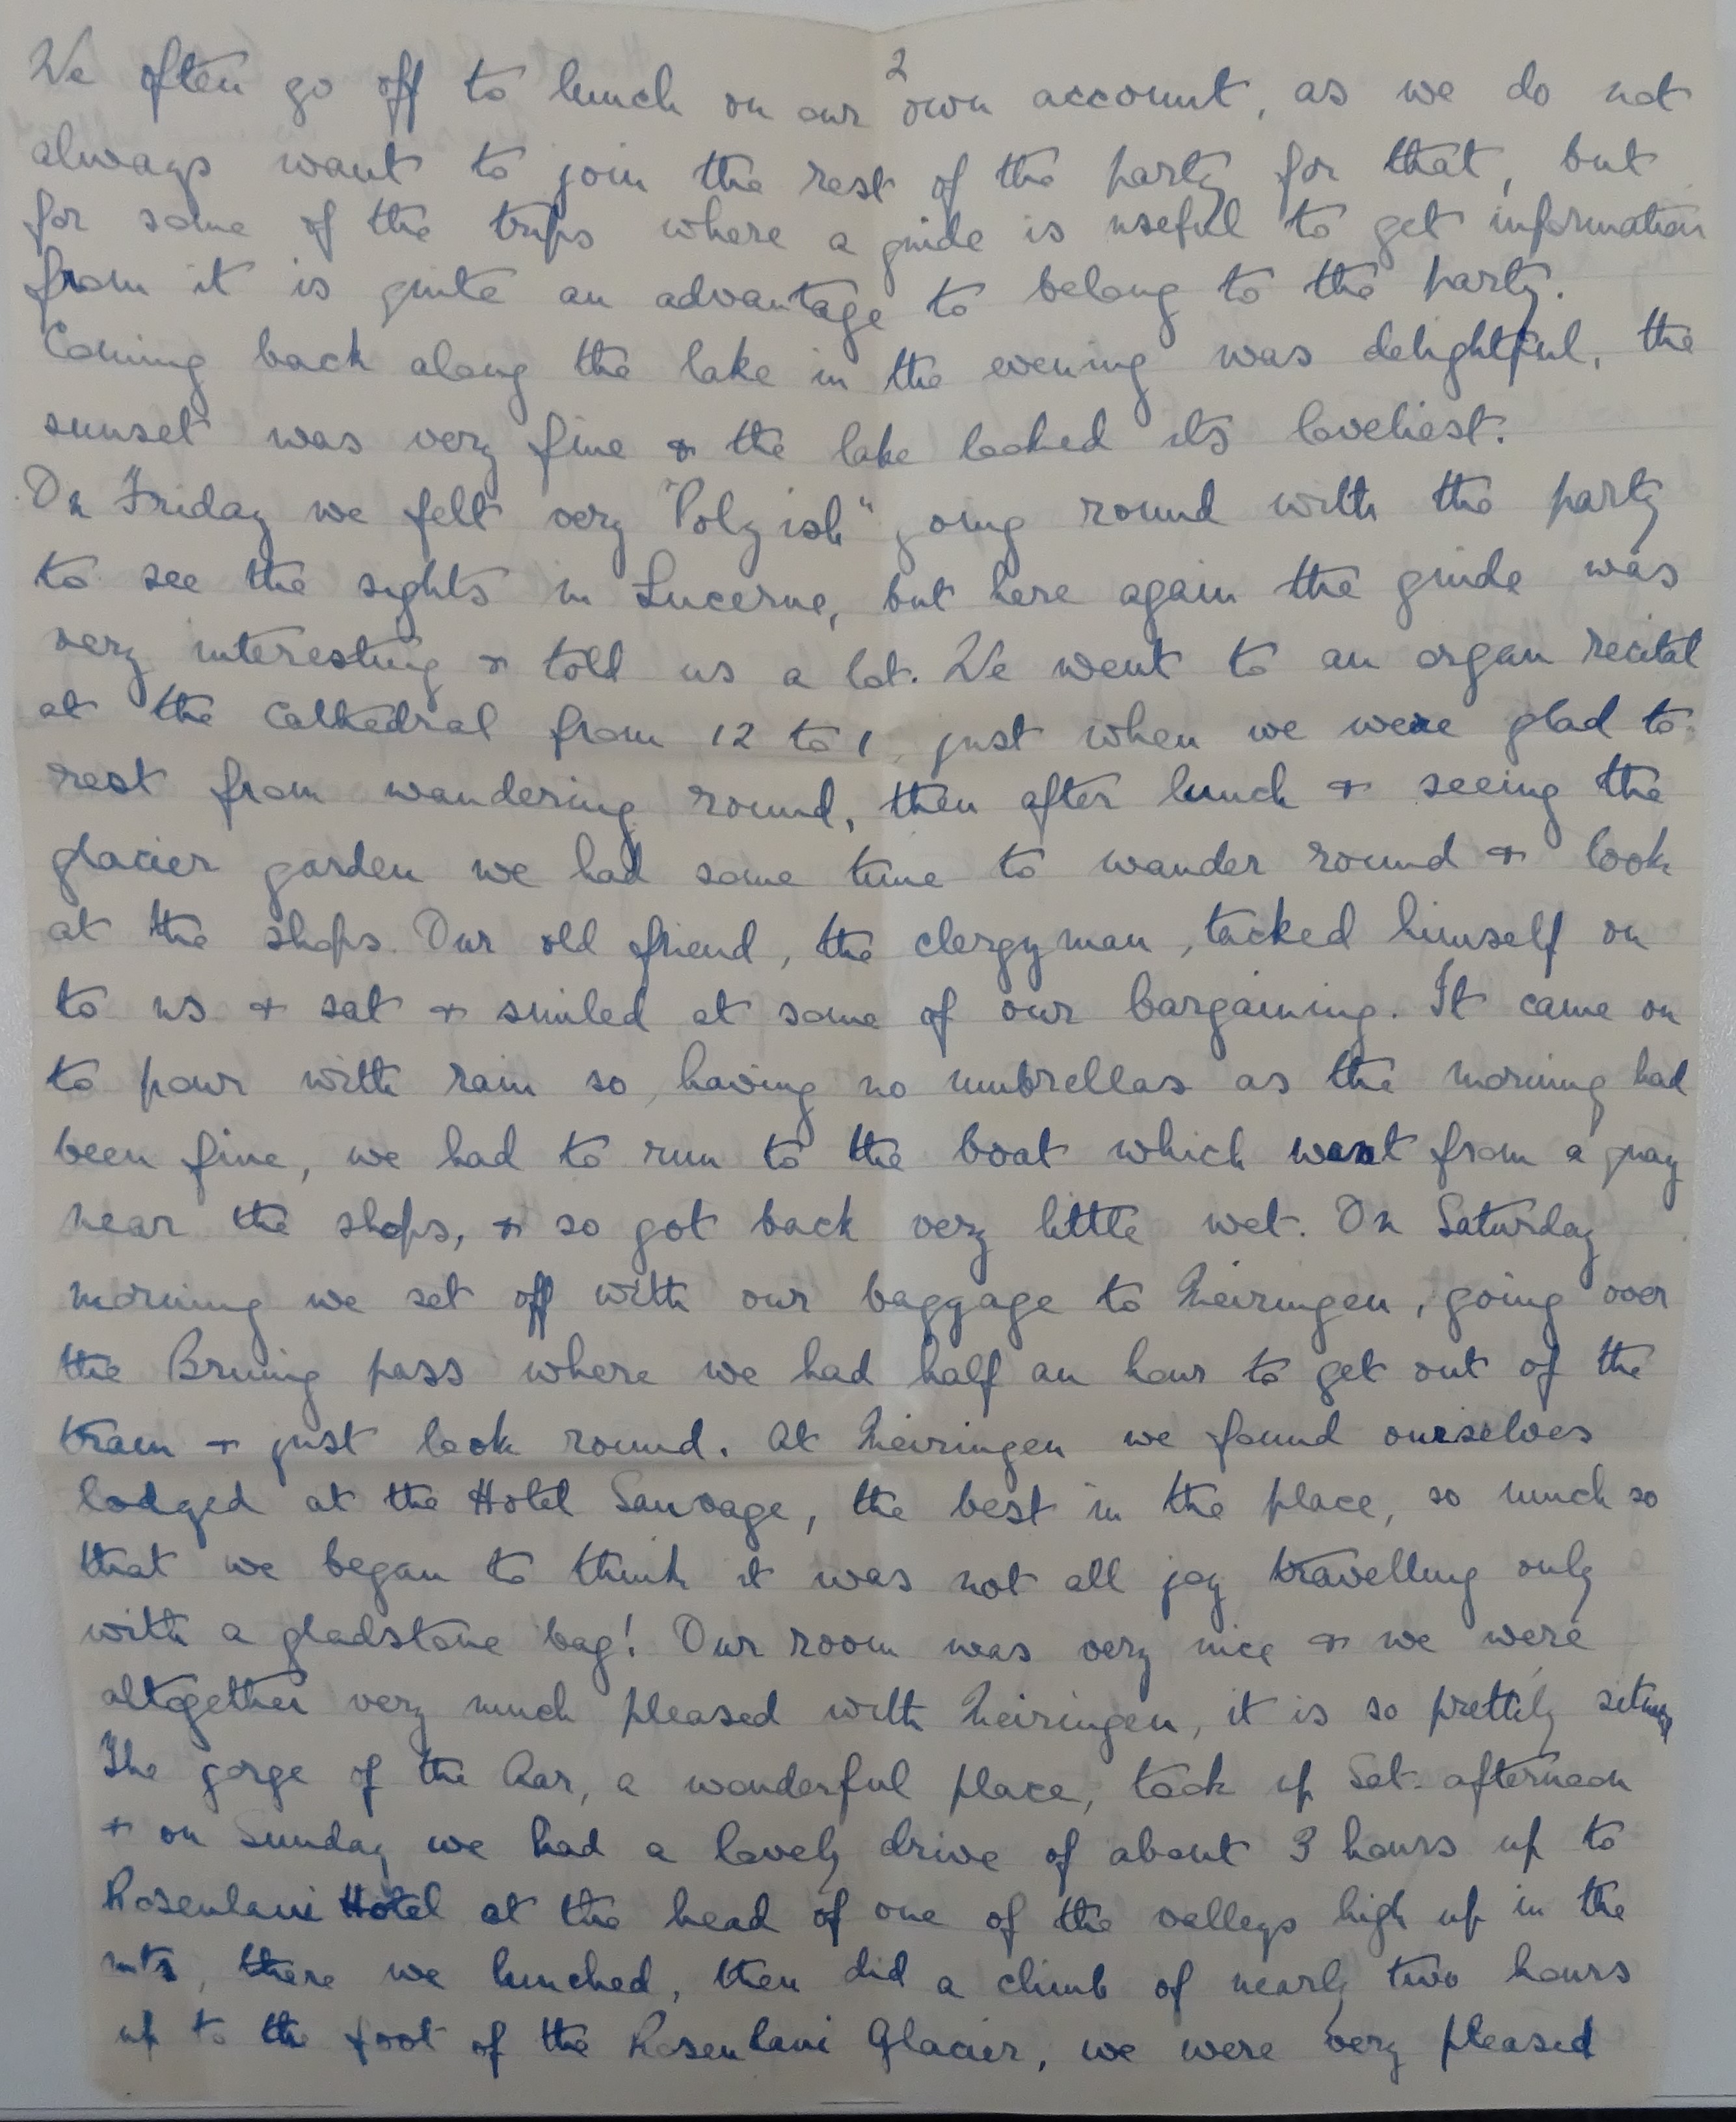 2
We often go off to lunch on our own account, as we do not
always want to join the rest of the party for that, but
for some of the trips where a guide is useful to get information
from it is quite an advantage to belong to the party.
Coming back along the lake in the evening was delightful, the
sunset was very fine & the lake looked its loveliest.
On Friday we felt very "Polyish" going round with the party
to see the sights in Lucerne, but here again the guide was
very interesting & told us a lot. We went to an organ recital
at the Cathedral from 12 to 1, just when we were glad to
rest from wandering round, then after lunch & seeing the
glacier garden we had some time to wander round & look
at the shops. Our old friend, the clergyman, tacked himself on
to us & sat & smiled at some of our bargaining. It came on
to pour with rain so, having no umbrellas as the morning had
been fine, we had to run to the boat which went from a quay
near the shops, & so got back very little wet. On Saturday
morning we set off with our baggage to Meiringen, going over
the Bruning pass where we had half an hour to get out of the
train & just look round. At Meiringen we found ourselves
lodged at the Hotel Sauvage, the best in the place, so much so
that we began to think it was not all joy travelling only
with a gladstone bag! Our room was very nice & we were
altogether very much pleased with Meiringen, it is so prettily
The gorge of the Aar, a wonderful place, took up Sat. afternoon
& on Sunday we had a lovely drive of about 3 hours up to
Rosenlaui Hotel at the head of one of the valleys high up in the
mts, there we lunched, then did a climb of nearly two hours
up to the foot of the Rosenlaui Glacier, we were very pleased